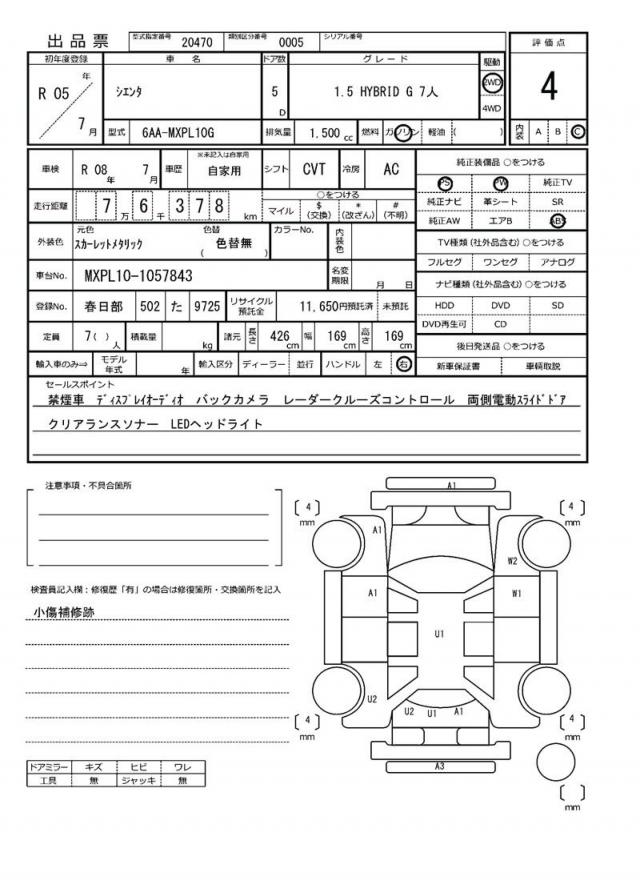 出品票 型式指定番号 20470 類別区分番号 0005 シリアル番号
初年度登録 車名 ドア数 グレード 駆動 評価点
R 05 年 7 月 シエンタ 5 D 1.5 HYBRID G 7人 2WD 4WD 4
型式 6AA-MXPL10G 排気量 1,500 cc 燃料 ガソリン 軽油 ( ) 内装 A B C
車検 R 08 年 7 月 車歴 ※未記入は自家用 自家用 シフト CVT 冷房 AC
走行距離 7 万 6 千 3 7 8 km ○をつける
マイル $ (交換) * (改ざん) # (不明)
外装色 元色 スカーレットメタリック 色替 ( 色替無 ) カラーNo. 内装色
車台No. MXPL10-1057843 名変期限 月 日
登録No. 春日部 502 た 9725 リサイクル預託金 11,650円預託済 未預託
定員 7( ) 人 積載量 kg 諸元 長さ 426 cm 幅 169 cm 高さ 169 cm
輸入車のみ⇒ モデル年式 年 輸入区分 ディーラー 並行 ハンドル 左 右
純正装備品 ○をつける
PS PW 純正TV
純正ナビ 革シート SR
純正AW エアB ABS
TV種類 (社外品含む) ○をつける
フルセグ ワンセグ アナログ
ナビ種類 (社外品含む) ○をつける
HDD DVD SD
DVD再生可 CD
後日発送品 ○をつける
新車保証書 車輌取説
セールスポイント
禁煙車 ディスプレイオーディオ バックカメラ レーダークルーズコントロール 両側電動スライドドア
クリアランスソナー LEDヘッドライト
注意事項・不具合箇所
検査員記入欄：修復歴「有」の場合は修復箇所・交換箇所を記入
小傷補修跡
ドアミラー キズ ヒビ ワレ
工具 無 ジャッキ 無
A1
[ 4 ] mm
[ 4 ] mm
A1
W2
A1
W1
U1
U2
U2 U1 A1
[ 4 ] mm
[ 4 ] mm
A3
[ ] mm